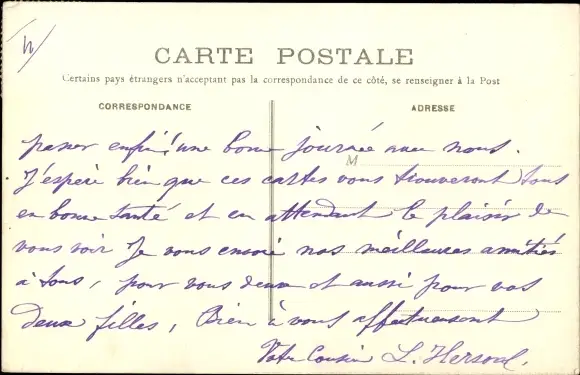 CARTE POSTALE
Certains pays étrangers n'acceptant pas la correspondance de ce côté, se renseigner à la Post
CORRESPONDANCE
ADRESSE
M
passer enfin une bonne journée avec nous.
J'espère bien que ces cartes vous trouveront tous
en bonne santé et en attendant le plaisir de
vous voir Je vous envoie nos meilleures amitiés
à tous, pour vous deux et aussi pour vos
deux filles, Bien à vous affectueusement
Votre Cousin L.